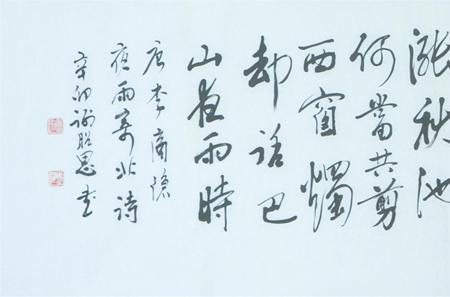 涨秋池
何當共剪
西窗燭
却話巴
山夜雨時
唐李商隐
夜雨寄北詩
辛卯謝昭思書